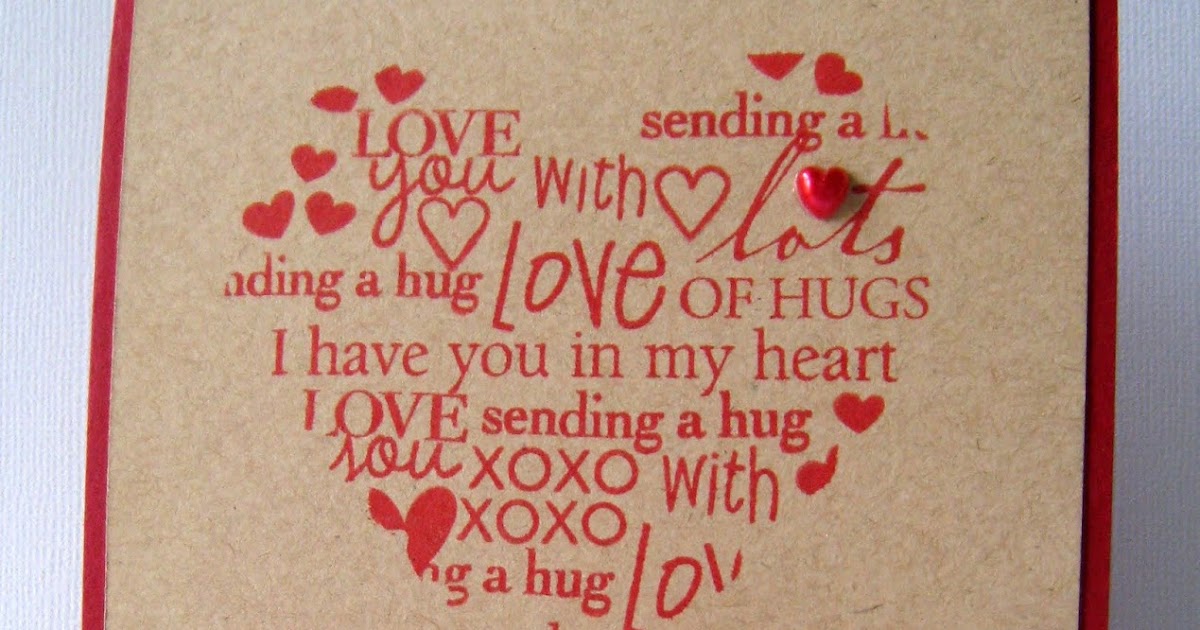 LOVE sending a
you with lots
nding a hug love OF HUGS
I have you in my heart
LOVE sending a hug
you XOXO with
XOXO
ng a hug lov